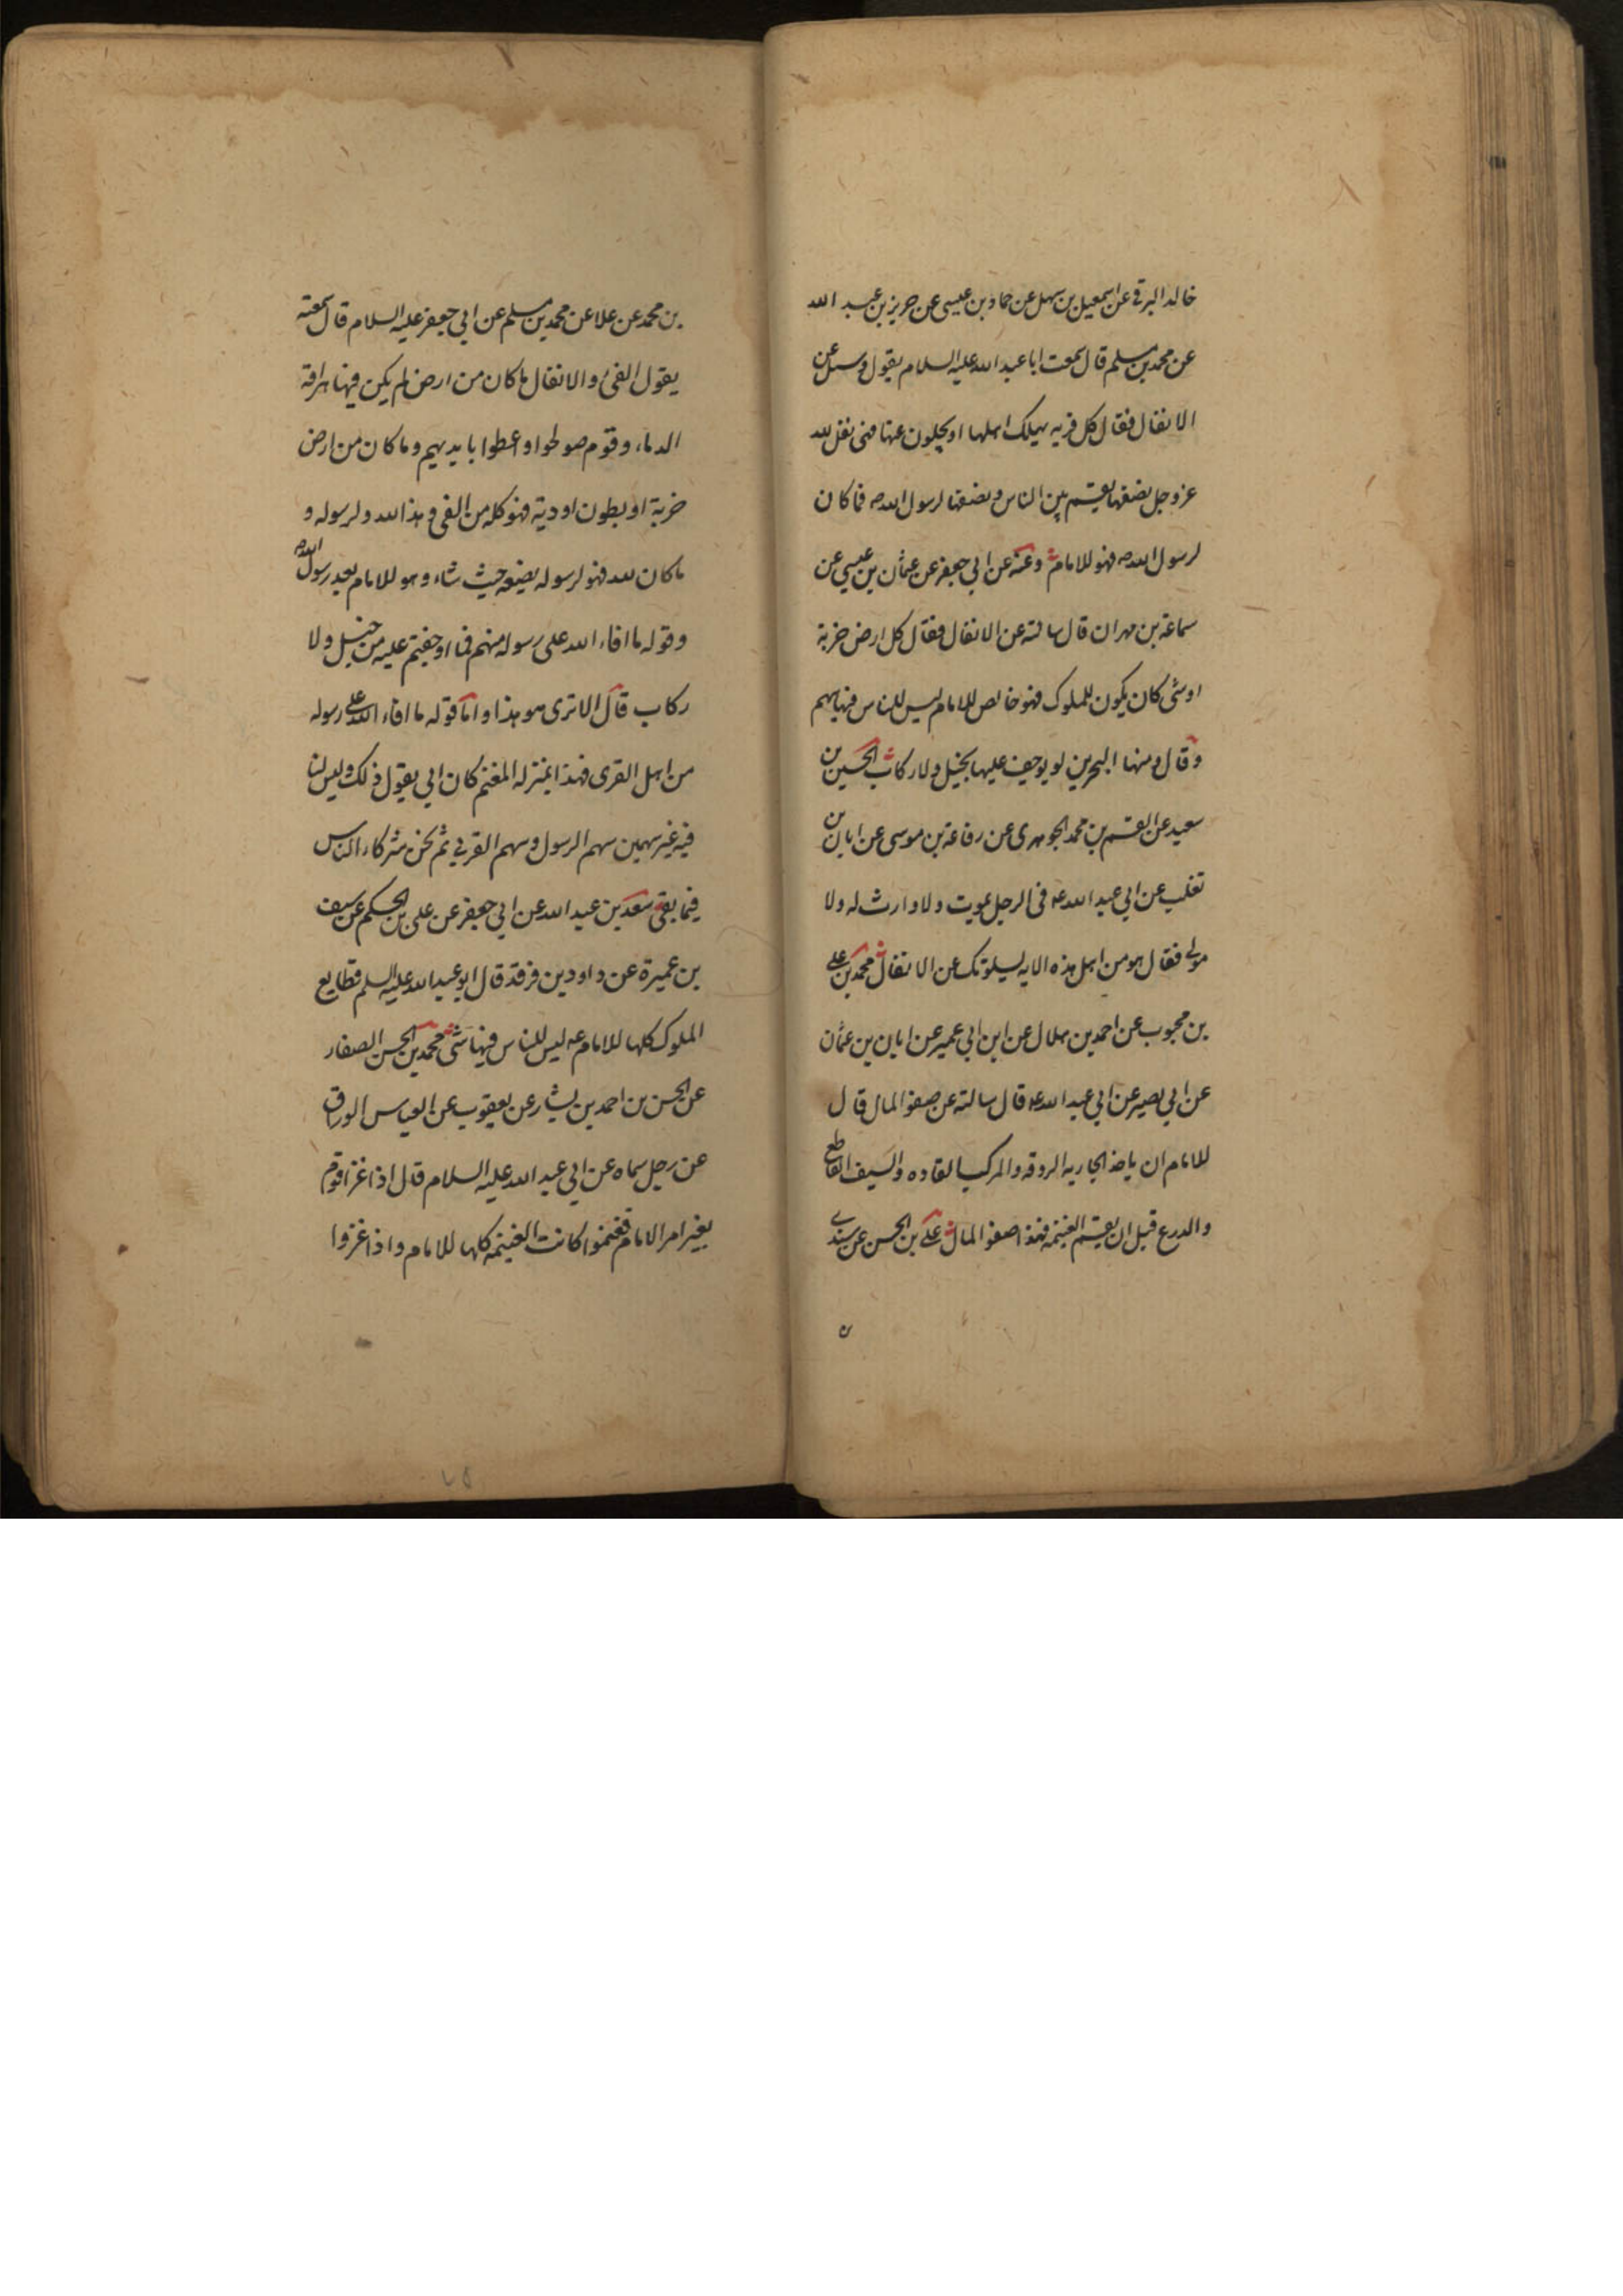 خالد البرقي عن اسمعيل بن سهل عن حماد بن عيسى عن حريز بن عبد الله
عن محمد بن مسلم قال سمعت ابا عبد الله عليه السلام يقول وسئل عن
الانفال فقال كل قريه يهلك اهلها او يجلون عنها فهى نفل لله
عز وجل نصفها يقسم بين الناس ونصفها لرسول الله ص فما كان
لرسول الله ص فهو للامام وعنه عن ابي جعفر عن عثمان بن عيسى عن
سماعة بن مهران قال سالته عن الانفال فقال كل ارض خربة
او شئ كان يكون للملوك فهو خالص للامام ليس للناس فيها سهم
وقال ومنها البحرين لو يوجف عليها بخيل ولا ركاب الحسين بن
سعيد عن القسم بن محمد الجوهرى عن رفاعة بن موسى عن ابان بن
تغلب عن ابي عبد الله ع فى الرجل يموت ولا وارث له ولا
مولى فقال هو من اهل هذه الايه يسلونك عن الانفال محمد بن على
بن محبوب عن احمد بن هلال عن ابن ابي عمير عن ابان بن عثمان
عن ابي بصير عن ابي عبد الله ع قال سالته عن صفو المال قال
للامام ان ياخذ الجاريه الروقه والمركب القاده والسيف القاطع
والدرع قبل ان يقسم الغنيمه فهذا صفو المال على بن الحسن عن سندى
بن محمد عن علا عن محمد بن مسلم عن ابي جعفر عليه السلام قال سمعته
يقول الفئ والانفال ما كان من ارض لم يكن فيها هراقة
الدماء وقوم صولحوا او اعطوا بايديهم وما كان من ارض
خربة او بطون اودية فهو كله من الفئ فهذا لله ولرسوله و
ما كان لله فهو لرسوله يضعه حيث شاء وهو للامام بعد رسول الله ص
وقوله ما افاء الله على رسوله منهم فما اوجفتم عليه من خيل ولا
ركاب قال الا ترى هو هذا واما قوله ما افاء الله على رسوله
من اهل القرى فهذا بمنزله المغنم كان ابي يقول ذلك وليس لنا
فيه غير سهمين سهم الرسول وسهم القربي ثم نحن شركاء الناس
فيما بقى سعد بن عبد الله عن ابي جعفر عن على بن الحكم عن سيف
بن عميرة عن داود بن فرقد قال ابو عبد الله عليه السلم قطايع
الملوك كلها للامام ع ليس للناس فيها شئ محمد بن الحسن الصفار
عن الحسن بن احمد بن بشار عن يعقوب عن العباس الوراق
عن رجل سماه عن ابي عبد الله عليه السلام قال اذا غزا قوم
بغير امر الامام فغنموا كانت الغنيمه كلها للامام واذا غزوا